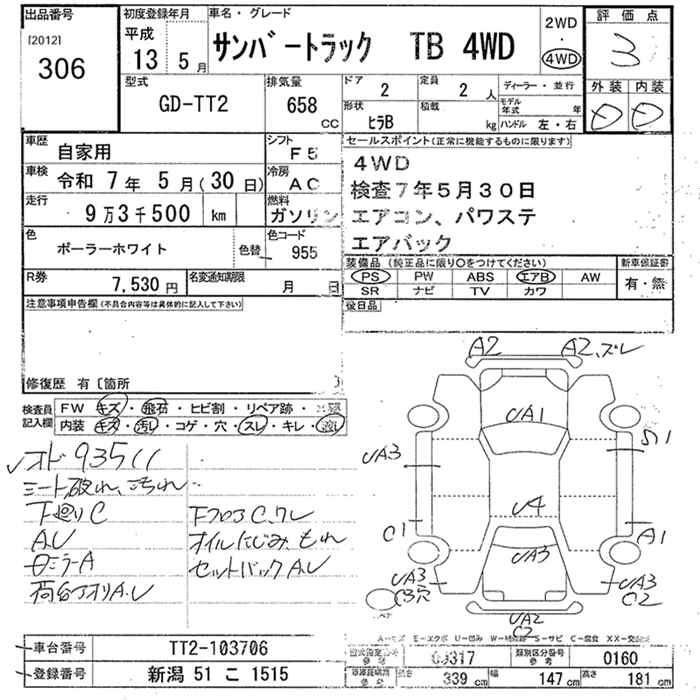 出品番号
[2012]
306
初度登録年月
平成
13 5 月
車名・グレード
サンバートラック TB 4WD
2WD
・
4WD
評価点
3
外装 内装
D D
型式
GD-TT2
排気量
658 cc
ドア
2
定員
2 人
形状
ヒラB
積載
kg
ディーラー・並行
モデル年式 年
ハンドル 左・右
車歴
自家用
シフト
F5
車検
令和 7 年 5 月(30 日)
冷房
AC
走行
9万3千500 km
燃料
ガソリン
色
ポーラーホワイト
色替
色コード
955
R券
7,530 円
名変通知期限
月 日
セールスポイント(正常に機能するものに限ります)
4WD
検査7年5月30日
エアコン、パワステ
エアバック
装備品(純正品に限り○をつけてください)
PS PW ABS エアB AW
SR ナビ TV カワ
新車保証書
有・無
後日品
注意事項申告欄(不具合内容等は具体的に記入して下さい)
修復歴 有〔箇所 〕
検査員記入欄
FW キズ・飛石・ヒビ割・リペア跡・
内装 キズ・汚レ・コゲ・穴・スレ・キレ・
オド 93511
シート破れ、汚れ
下廻りC
A.U
ロミラーA
荷台アオリA.U
下フロアC.ワレ
オイルにじみ、もれ
セットバックA.U
A2
A2、ズレ
UA1
UA3
S1
U4
C1
A1
UA3
UA3
C3穴
UA3
C2
UA2
C2
A-キズ E-エクボ U-凹み W-補修跡 S-サビ C-腐食 XX-交換済
車台番号
TT2-103706
登録番号
新潟 51 こ 1515
型式指定番号
参考
類別区分番号
参考
0160
長さ
339 cm
幅
147 cm
高さ
181 cm